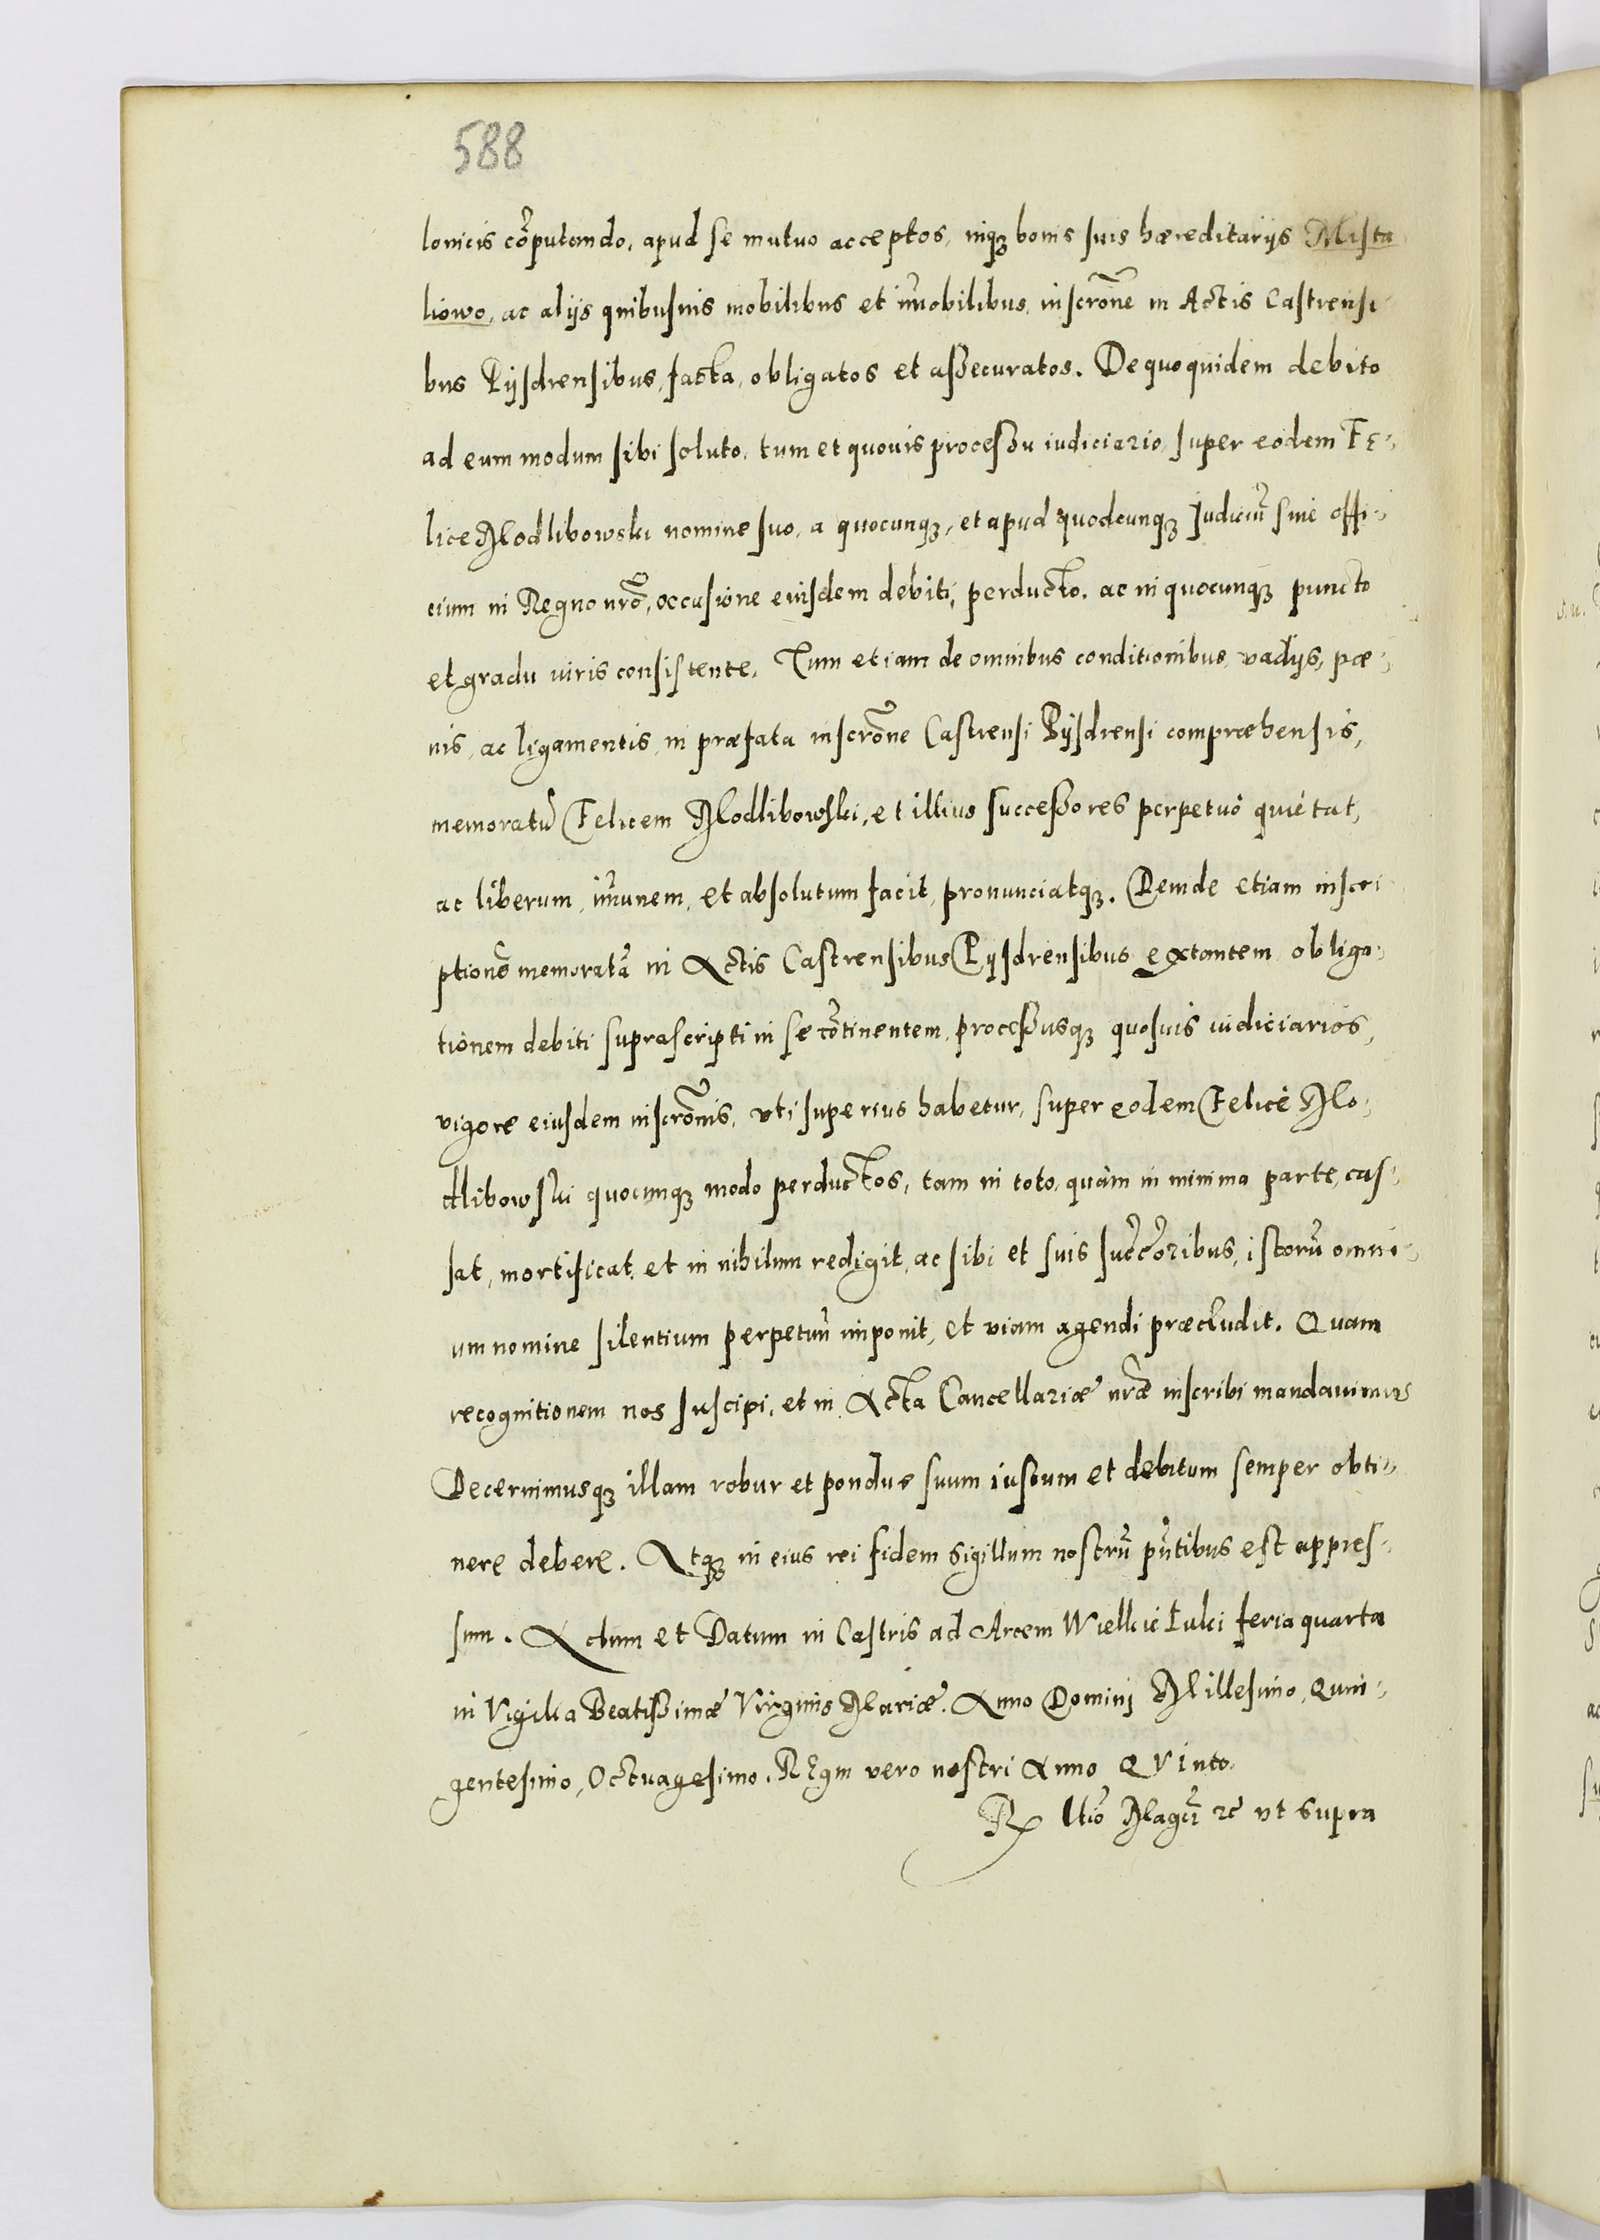 588
lonicis cõputando, apud se mutuo acceptos, inqꝫ bonis suis hæreditarijs Mista
liowo, ac alijs quibusuis mobilibus et im̃obilibus, inscrõne in Actis Castrensi
bus Pijsdrensibus, facta, obligatos et assecuratos. De quo quidem debito
ad eum modum sibi soluto, tum et quouis processu iudiciario super eodem Fe-
lice Modlibowski nomine suo, a quocunqꝫ, et apud quodcunqꝫ Judiciũ siue offi-
cium in Regno nrõ, occasione eiusdem debiti, perducto, ac in quocunqꝫ puncto
et gradu iuris consistente. Tum etiam de omnibus conditionibus, vadijs, pœ-
nis, ac ligamentis, in præfata inscrõne Castrensi Pijsdrensi compræhensis,
memoratũ Felicem Modlibowski, et illius successores perpetuò quietat,
ac liberum, im̃unem, et absolutum facit, pronunciatqꝫ. Demde etiam inscri
ptionẽ memoratã in Actis Castrensibus Pijsdrensibus extantem obliga-
tionem debiti suprascripti in se cõtinentem, processusqꝫ quosuis iudiciarios,
vigore eiusdem inscrõnis, vti superius habetur, super eodem Felice Mo-
dlibowski quocunqꝫ modo perductos, tam in toto, quàm in minima parte, cas-
sat, mortificat, et in nihilum redigit, ac sibi et suis succ̃oribus, istorũ omni-
um nomine silentium perpetuũ imponit, et viam agendi præcludit. Quam
recognitionem nos suscipi, et in Acta Cancellariæ nrãe inscribi mandauimus
Decernimusqꝫ illam robur et pondus suum iustum et debitum semper obti-
nere debere. Atqꝫ in eius rei fidem sigillum nostrũ pñtibus est appres-
sum. Actum et Datum in Castris ad Arcem Wielkie Łuki feria quarta
in Vigilia Beatissimæ Virginis Mariæ. Anno Domini Millesimo, Quin-
gentesimo, Octuagesimo, Regni vero nostri Anno Quinto.
Rõ Magcĩ ꝛc̃ vt supra